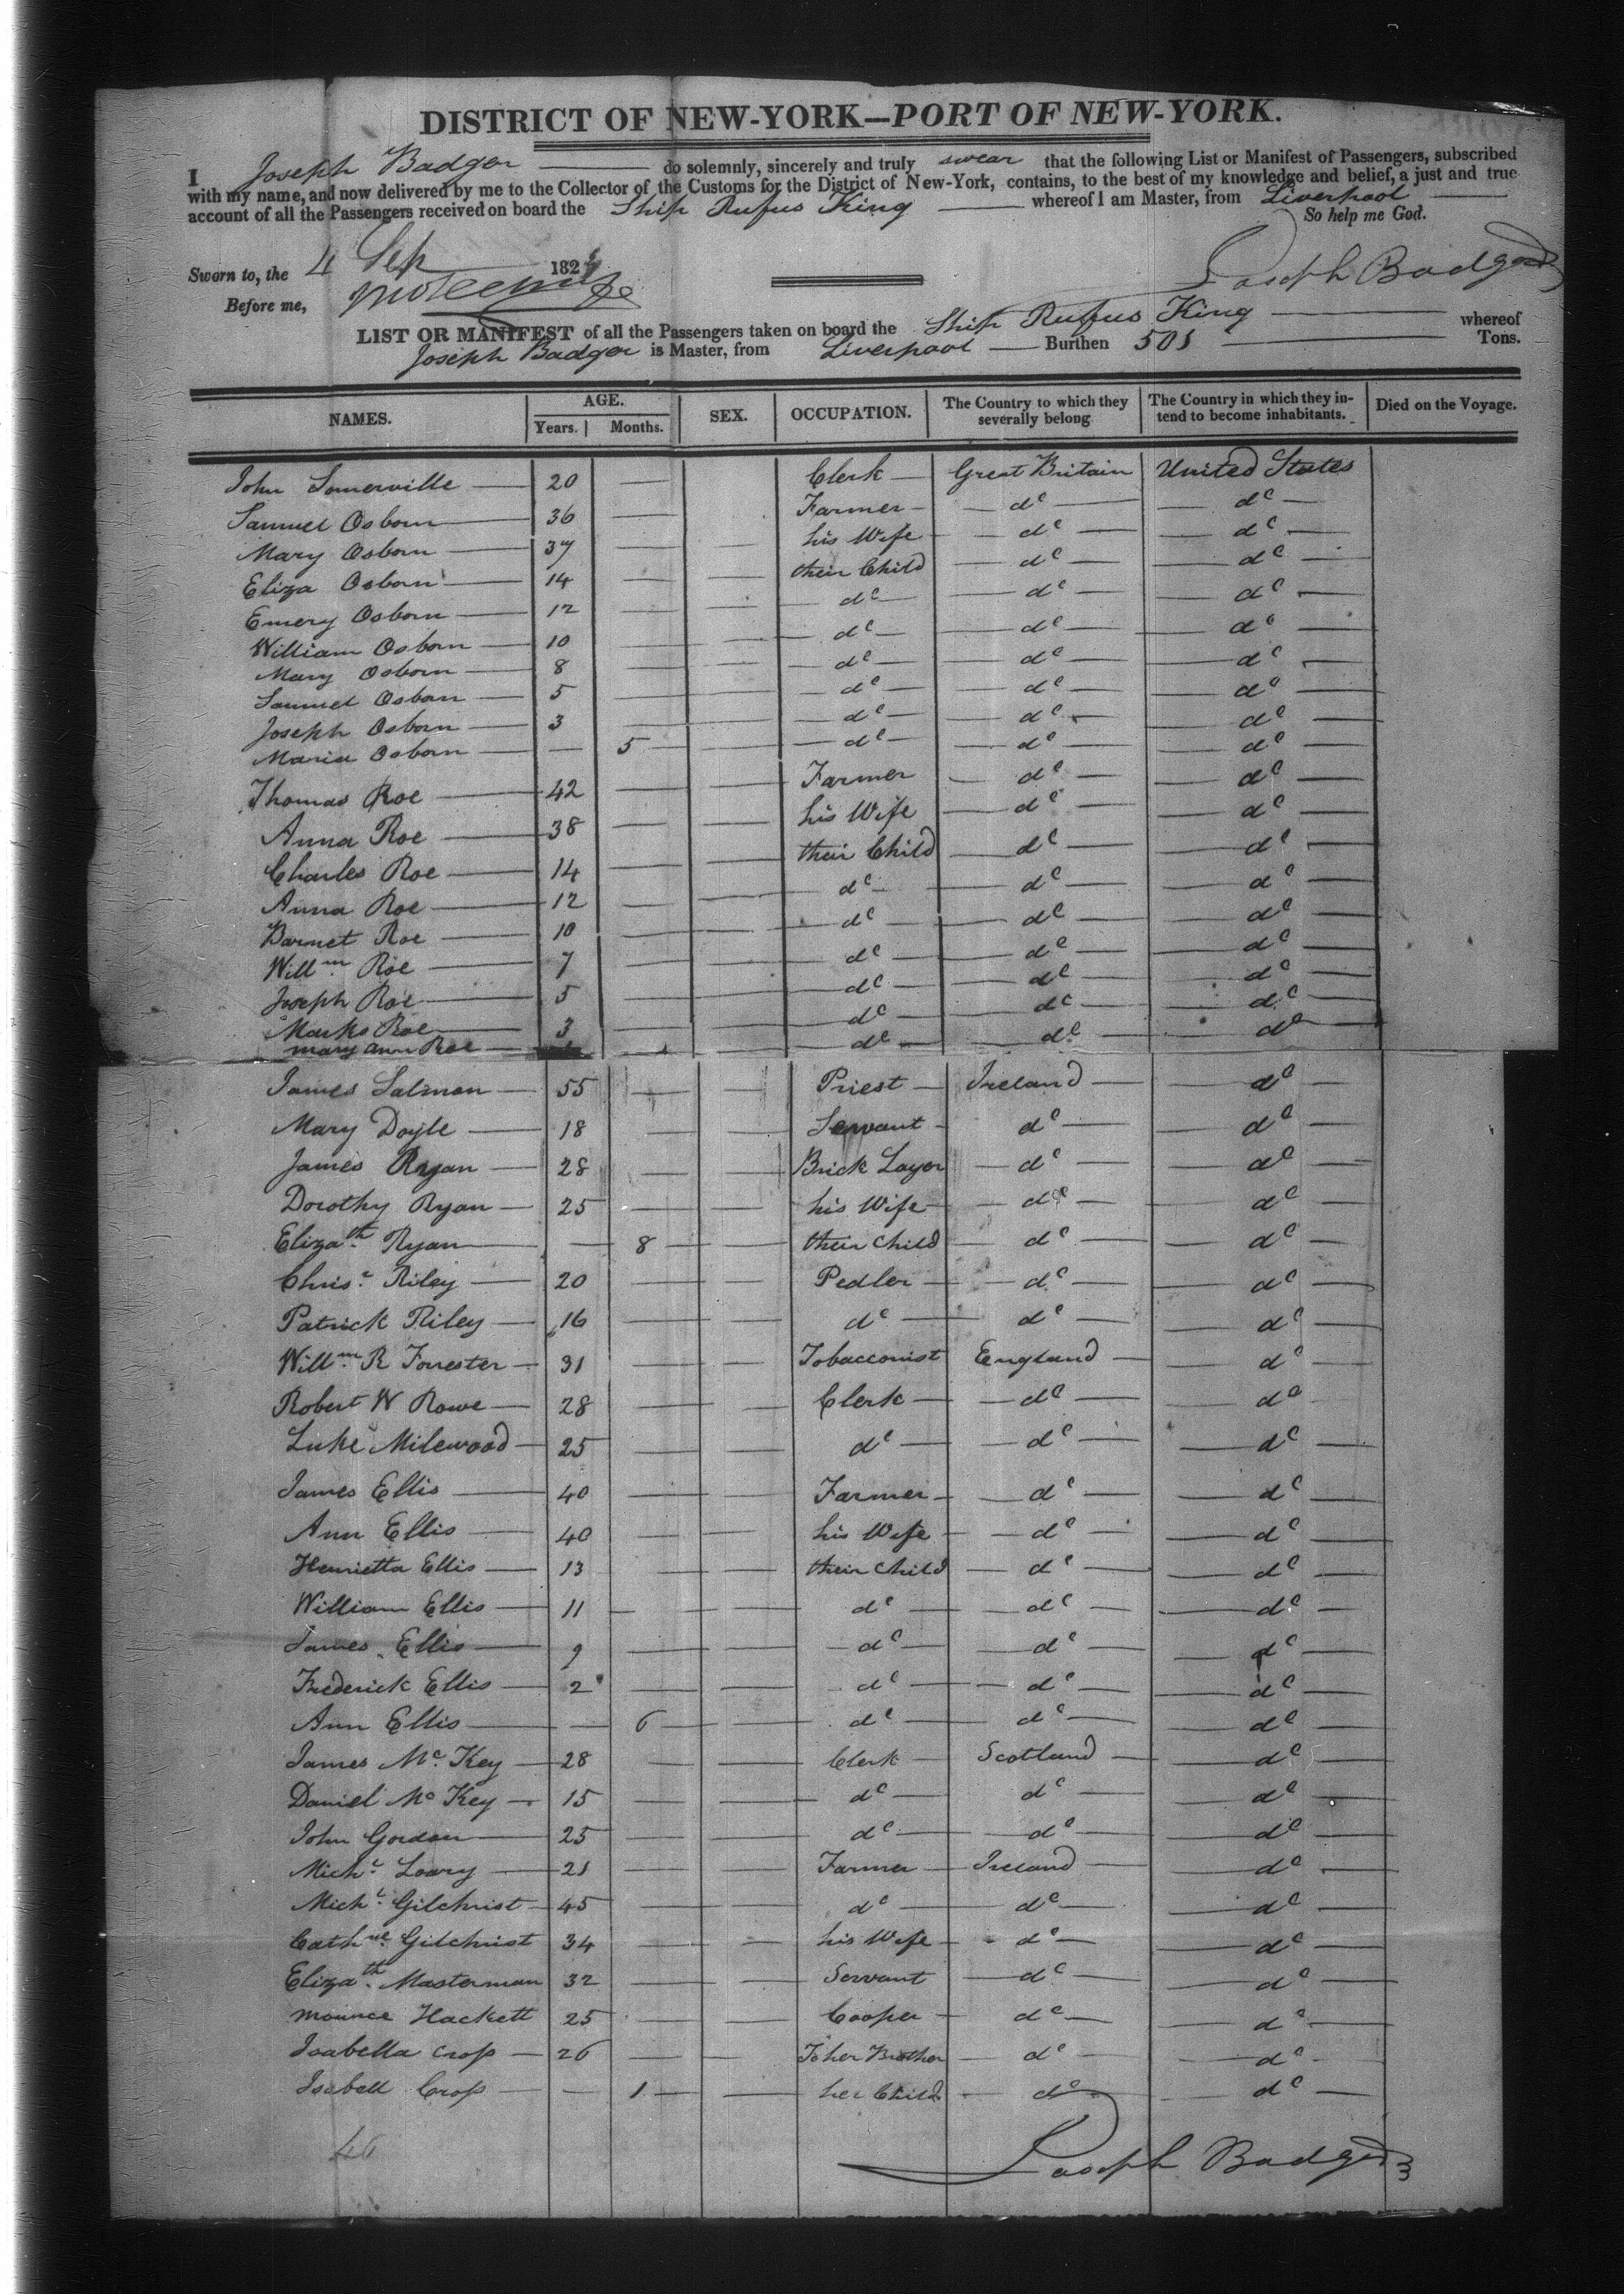 DISTRICT OF NEW-YORK—PORT OF NEW-YORK.
I Joseph Badger do solemnly, sincerely and truly swear that the following List or Manifest of Passengers, subscribed
with my name, and now delivered by me to the Collector of the Customs for the District of New-York, contains, to the best of my knowledge and belief, a just and true
account of all the Passengers received on board the Ship Rufus King whereof I am Master, from Liverpool
So help me God.
Sworn to, the 4 Sep 1824
Joseph Badger
Before me,
LIST OR MANIFEST of all the Passengers taken on board the Ship Rufus King whereof
Joseph Badger is Master, from Liverpool Burthen 501 Tons.
NAMES. AGE. Years. Months. SEX. OCCUPATION. The Country to which they severally belong The Country in which they intend to become inhabitants. Died on the Voyage.
John Somerville — 20 — Clerk — Great Britain United States
Samuel Osborn — 36 — Farmer — dº — dº —
Mary Osborn — 37 — his Wife — dº — dº —
Eliza Osborn — 14 — their Child — dº — dº —
Emery Osborn — 12 — dº — dº — dº —
William Osborn — 10 — dº — dº — dº —
Mary Osborn — 8 — dº — dº — dº —
Samuel Osborn — 5 — dº — dº — dº —
Joseph Osborn — 3 — dº — dº — dº —
Maria Osborn — — 5 — dº — dº — dº —
Thomas Roe — 42 — Farmer — dº — dº —
Anna Roe — 38 — his Wife — dº — dº —
Charles Roe — 14 — their Child — dº — dº —
Anna Roe — 12 — dº — dº — dº —
Barnet Roe — 10 — dº — dº — dº —
Willm. Roe — 7 — dº — dº — dº —
Joseph Roe — 5 — dº — dº — dº —
Marks Roe — 3 — dº — dº — dº —
Mary Ann Roe — dº — dº — dº
James Salmon — 55 — Priest — Ireland — dº —
Mary Doyle — 18 — Servant — dº — dº —
James Ryan — 28 — Brick Layer — dº — dº —
Dorothy Ryan — 25 — his Wife — dº — dº —
Elizath. Ryan — — 8 — their Child — dº — dº —
Chrisr. Riley — 20 — Pedler — dº — dº —
Patrick Riley — 16 — dº — dº — dº —
Willm. R Forrester — 31 — Tobacconist England — dº —
Robert W Rowe — 28 — Clerk — dº — dº
Luke Milewood — 25 — dº — dº — dº —
James Ellis — 40 — Farmer — dº — dº —
Ann Ellis — 40 — his Wife — dº — dº —
Henrietta Ellis — 13 — their Child — dº — dº —
William Ellis — 11 — dº — dº — dº —
James Ellis — 9 — dº — dº — dº —
Frederick Ellis — 2 — dº — dº — dº —
Ann Ellis — — 6 — dº — dº — dº
James Mc. Key — 28 — Clerk — Scotland — dº —
Daniel Mc Key — 15 — dº — dº — dº —
John Gordon — 25 — dº — dº — dº —
Michl. Leary — 21 — Farmer — Ireland — dº —
Michl. Gilchrist — 45 — dº — dº — dº —
Cathne. Gilchrist 34 — his Wife — dº — dº —
Elizath. Masterman 32 — Servant — dº — dº —
Hackett 25 — Cooper — dº — dº —
Isabella Crop — 26 — To her Brother — dº — dº —
Isabell Crop — — 1 — her Child — dº — dº —
46
Joseph Badger